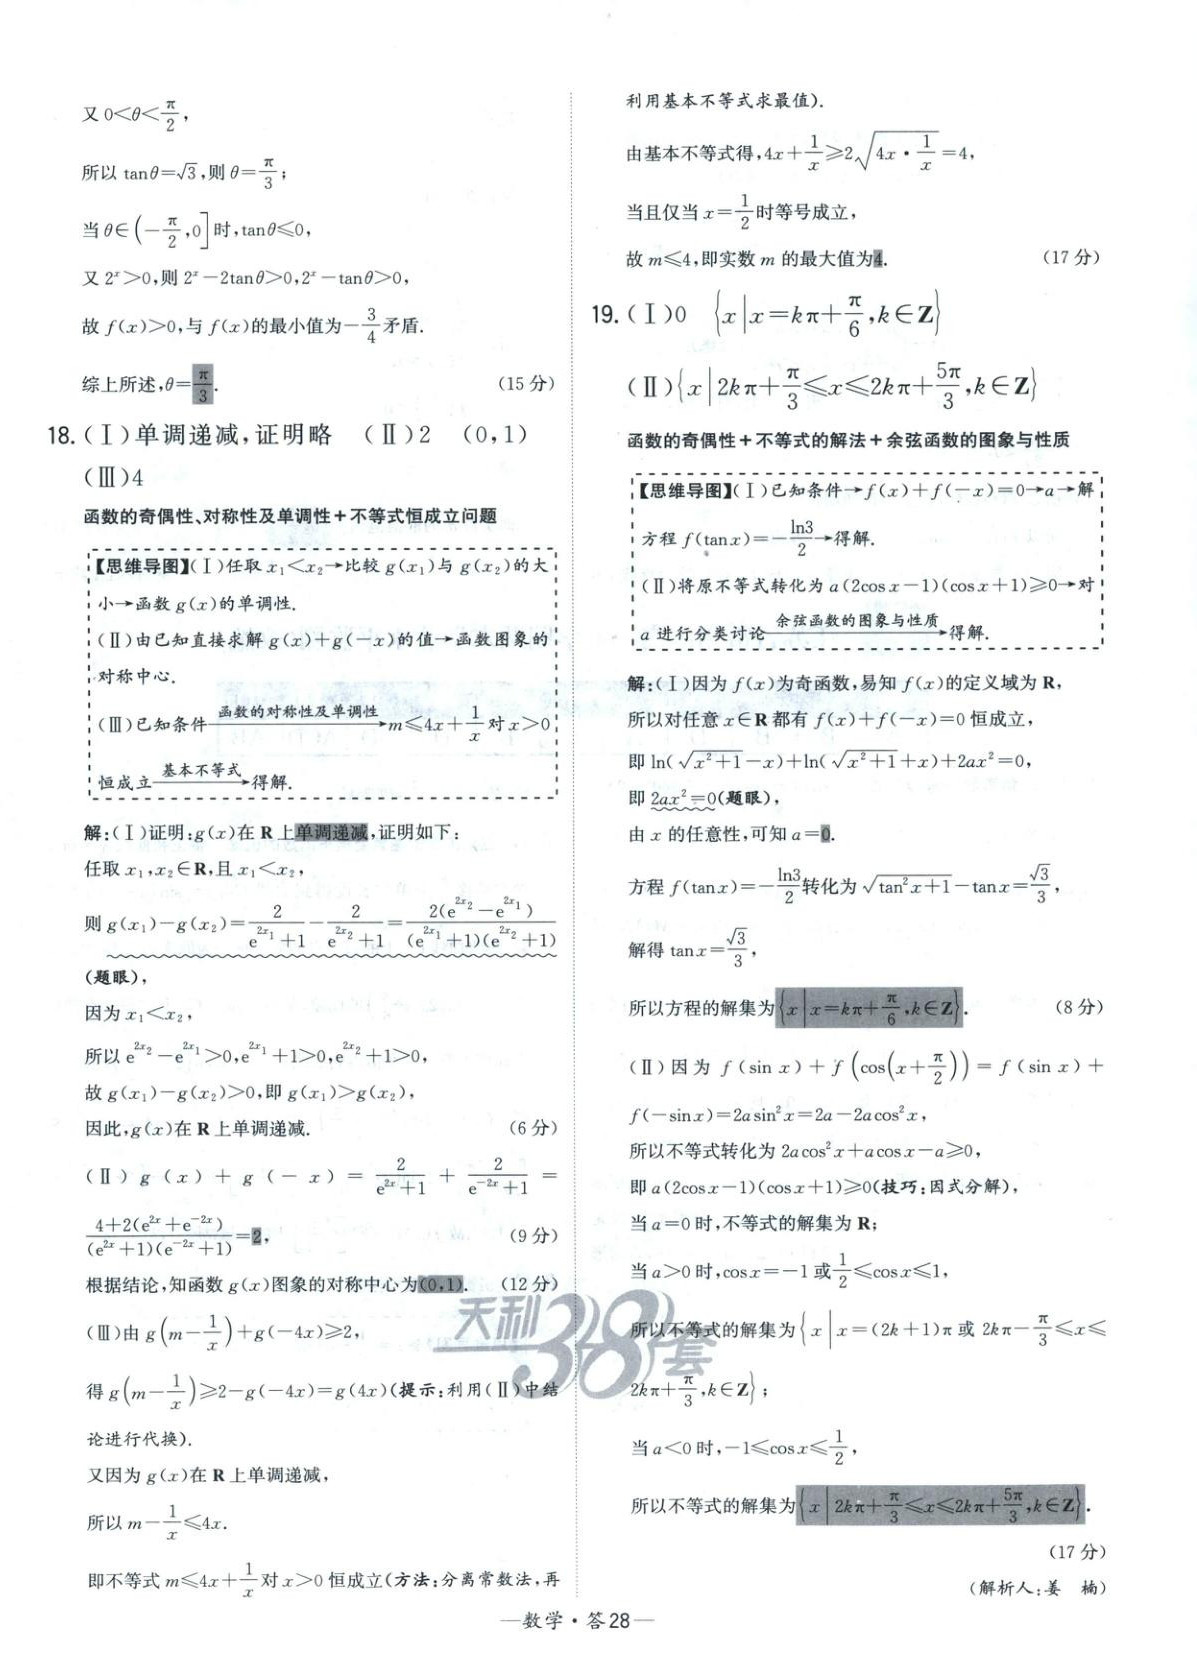 又 0<θ<π/2,
所以 tanθ=√3,则 θ=π/3;
当 θ∈(-π/2,0]时,tanθ≤0,
又 2ˣ>0,则 2ˣ-2tanθ>0,2ˣ-tanθ>0,
故 f(x)>0,与 f(x)的最小值为-3/4矛盾.
综上所述,θ=π/3. (15 分)
18.(Ⅰ)单调递减,证明略 (Ⅱ)2 (0,1)
(Ⅲ)4
函数的奇偶性、对称性及单调性+不等式恒成立问题
【思维导图】(Ⅰ)任取 x₁<x₂→比较 g(x₁)与 g(x₂)的大
小→函数 g(x)的单调性.
(Ⅱ)由已知直接求解 g(x)+g(-x)的值→函数图象的
对称中心.
(Ⅲ)已知条件 函数的对称性及单调性→m≤4x+1/x对 x>0
恒成立 基本不等式→得解.
解:(Ⅰ)证明:g(x)在 R 上单调递减,证明如下:
任取 x₁,x₂∈R,且 x₁<x₂,
则 g(x₁)-g(x₂)=2/(e^(2x₁)+1)-2/(e^(2x₂)+1)=2(e^(2x₂)-e^(2x₁))/((e^(2x₁)+1)(e^(2x₂)+1))
(题眼),
因为 x₁<x₂,
所以 e^(2x₂)-e^(2x₁)>0,e^(2x₁)+1>0,e^(2x₂)+1>0,
故 g(x₁)-g(x₂)>0,即 g(x₁)>g(x₂),
因此,g(x)在 R 上单调递减. (6 分)
(Ⅱ)g(x)+g(-x)=2/(e^(2x)+1)+2/(e^(-2x)+1)=
(4+2(e^(2x)+e^(-2x)))/((e^(2x)+1)(e^(-2x)+1))=2, (9 分)
根据结论,知函数 g(x)图象的对称中心为(0,1). (12 分)
(Ⅲ)由 g(m-1/x)+g(-4x)≥2,
得 g(m-1/x)≥2-g(-4x)=g(4x)(提示:利用(Ⅱ)中结
论进行代换).
又因为 g(x)在 R 上单调递减,
所以 m-1/x≤4x.
即不等式 m≤4x+1/x对 x>0 恒成立(方法:分离常数法,再
利用基本不等式求最值).
由基本不等式得,4x+1/x≥2√(4x·1/x)=4,
当且仅当 x=1/2时等号成立,
故 m≤4,即实数 m 的最大值为4. (17 分)
19.(Ⅰ)0 {x|x=kπ+π/6,k∈Z}
(Ⅱ){x|2kπ+π/3≤x≤2kπ+5π/3,k∈Z}
函数的奇偶性+不等式的解法+余弦函数的图象与性质
【思维导图】(Ⅰ)已知条件→f(x)+f(-x)=0→a→解
方程 f(tanx)=-ln3/2→得解.
(Ⅱ)将原不等式转化为 a(2cosx-1)(cosx+1)≥0→对
a 进行分类讨论 余弦函数的图象与性质→得解.
解:(Ⅰ)因为 f(x)为奇函数,易知 f(x)的定义域为 R,
所以对任意 x∈R 都有 f(x)+f(-x)=0 恒成立,
即 ln(√(x²+1)-x)+ln(√(x²+1)+x)+2ax²=0,
即 2ax²=0(题眼),
由 x 的任意性,可知 a=0.
方程 f(tanx)=-ln3/2转化为 √(tan²x+1)-tanx=√3/3,
解得 tanx=√3/3,
所以方程的解集为{x|x=kπ+π/6,k∈Z}. (8 分)
(Ⅱ)因为 f(sin x)+f(cos(x+π/2))=f(sin x)+
f(-sinx)=2asin²x=2a-2acos²x,
所以不等式转化为 2acos²x+acosx-a≥0,
即 a(2cosx-1)(cosx+1)≥0(技巧:因式分解),
当 a=0 时,不等式的解集为 R;
当 a>0 时,cosx=-1 或1/2≤cosx≤1,
所以不等式的解集为{x|x=(2k+1)π 或 2kπ-π/3≤x≤
2kπ+π/3,k∈Z};
当 a<0 时,-1≤cosx≤1/2,
所以不等式的解集为{x|2kπ+π/3≤x≤2kπ+5π/3,k∈Z}.
(17 分)
(解析人:姜 楠)
天利38套
—数学·答28—